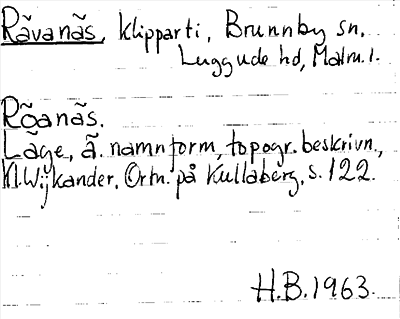 Råvanäs, klipparti, Brunnby sn,
Luggude hd, Malm. l.
Röanäs.
Läge, ä. namnform, topogr. beskrivn.,
Kl. Wijkander, Ortn. på Kullaberg, s. 122.
H.B. 1963.